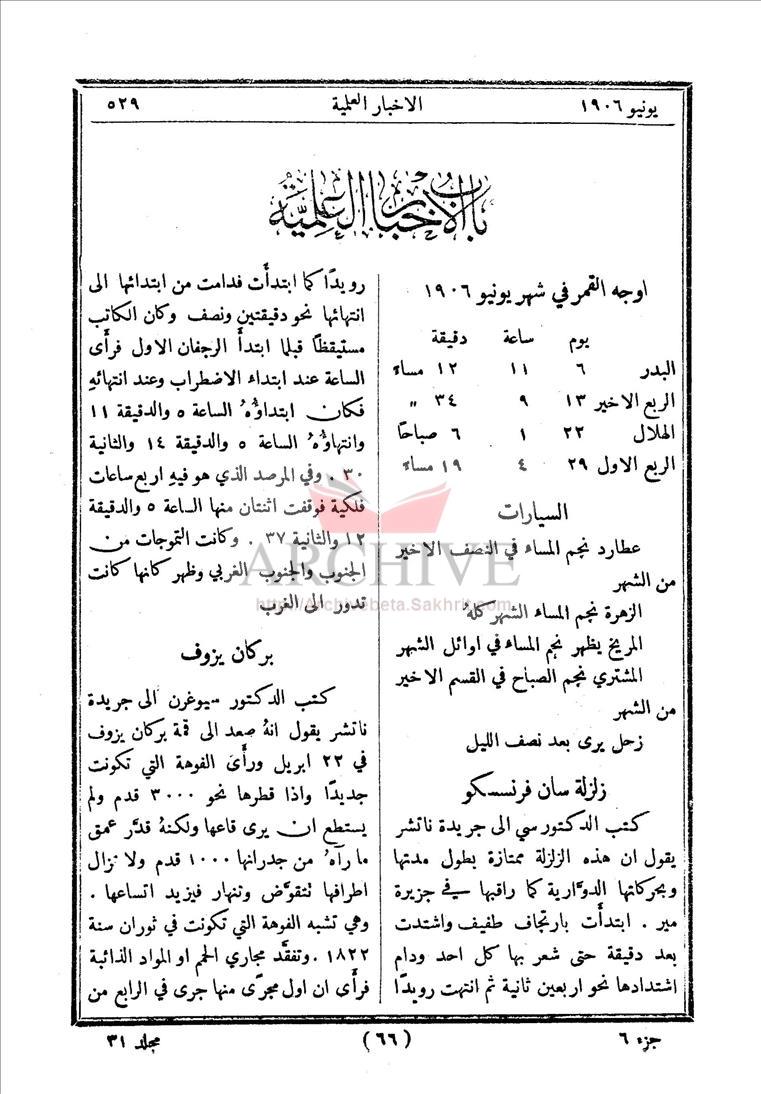 يونيو ١٩٠٦
الاخبار العلمية
٥٢٩
باب الاخبار العلمية
اوجه القمر في شهر يونيو ١٩٠٦
يوم ساعة دقيقة
البدر ٦ ١١ ١٢ مساءً
الربع الاخير ١٣ ٩ ٣٤ "
الهلال ٢٢ ١ ٦ صباحًا
الربع الاول ٢٩ ٤ ١٩ مساءً
السيارات
عطارد نجم المساء في النصف الاخير
من الشهر
الزهرة نجم المساء الشهر كلهُ
المريخ يظهر نجم المساء في اوائل الشهر
المشتري نجم الصباح في القسم الاخير
من الشهر
زحل يرى بعد نصف الليل
زلزلة سان فرنسسكو
كتب الدكتور سي الى جريدة ناتشر
يقول ان هذه الزلزلة ممتازة بطول مدتها
وبحركاتها الدوَّارية كما راقبها في جزيرة
مير . ابتدأَت بارتجاف طفيف واشتدت
بعد دقيقة حتى شعر بها كل احد ودام
اشتدادها نحو اربعين ثانية ثم انتهت رويدًا
رويدًا كما ابتدأَت فدامت من ابتدائها الى
انتهائها نحو دقيقتين ونصف وكان الكاتب
مستيقظًا قبلما ابتدأَ الرجفان الاول فرأى
الساعة عند ابتداء الاضطراب وعند انتهائهِ
فكان ابتداؤُهُ الساعة ٥ والدقيقة ١١
وانتهاؤُهُ الساعة ٥ والدقيقة ١٤ والثانية
٣٠ . وفي المرصد الذي هو فيهِ اربع ساعات
فلكية فوقفت اثنتان منها الساعة ٥ والدقيقة
١٢ والثانية ٣٧ . وكانت التموجات من
الجنوب والجنوب الغربي وظهر كانها كانت
تدور الى الغرب
بركان يزوف
كتب الدكتور سيوغرن الى جريدة
ناتشر يقول انهُ صعد الى قمة بركان يزوف
في ٢٢ ابريل ورأَى الفوهة التي تكونت
جديدًا واذا قطرها نحو ٣٠٠٠ قدم ولم
يستطع ان يرى قاعها ولكنهُ قدَّر عمق
ما رآهُ من جدرانها ١٠٠٠ قدم ولا تزال
اطرافها تتقوَّض وتنهار فيزيد اتساعها .
وهي تشبه الفوهة التي تكونت في ثوران سنة
١٨٢٢ . وتفقَّد مجاري الحمم او المواد الذائبة
فرأى ان اول مجرًى منها جرى في الرابع من
جزء ٦
(٦٦)
مجلد ٣١
ARCHIVE
http://Archivebeta.Sakhrit.com